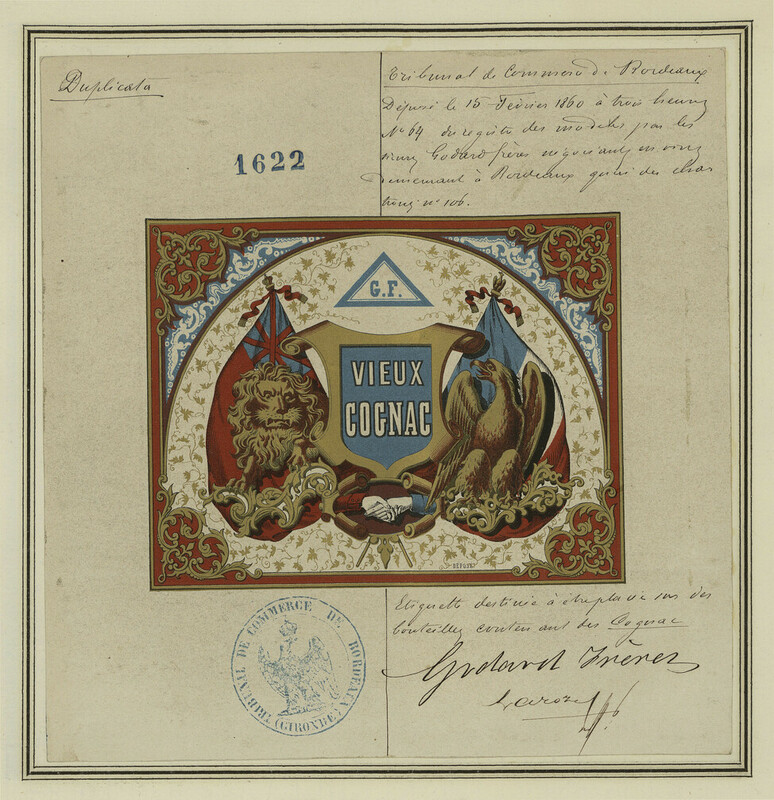 Duplicata
1622
Tribunal de Commerce de Bordeaux
Déposé le 15 Février 1860 à trois heures
N° 64 du registre des modèles par les
sieurs Godard frères négociants en vins
demeurant à Bordeaux quai des Char
trons n° 106.
G.F.
VIEUX
COGNAC
DÉPOSÉ
Etiquette destinée à être placée sur des
bouteilles contenant des Cognac
Godard Frères
TRIBUNAL DE COMMERCE DE BORDEAUX
(GIRONDE)